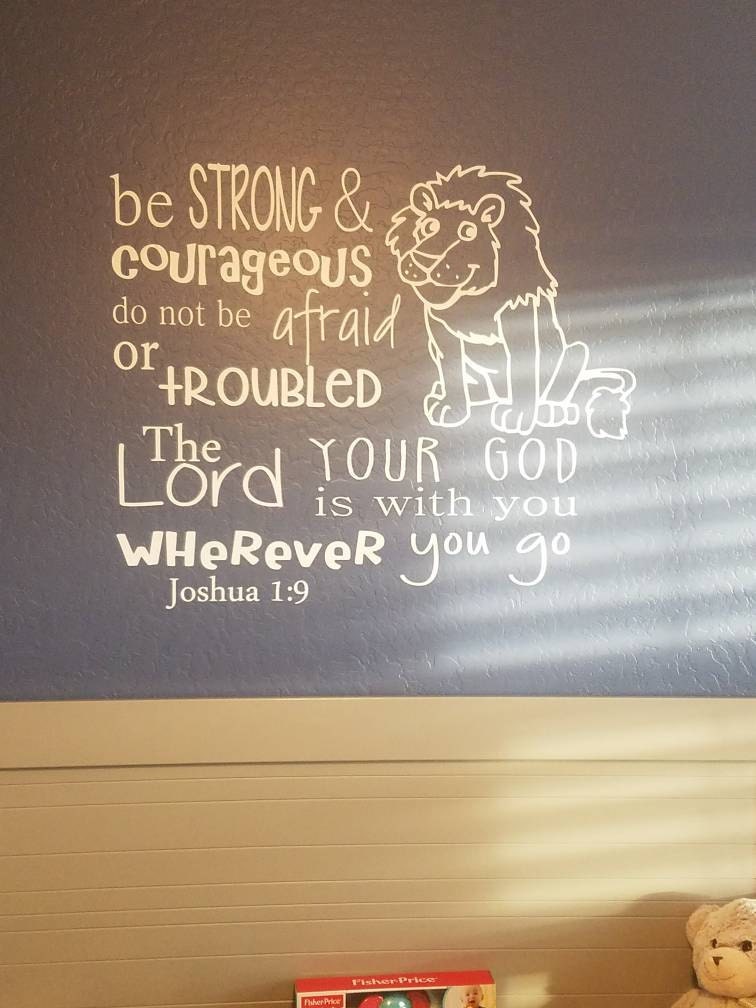 be STRONG &
courageous
do not be afraid
or
troubled
The
Lord YOUR GOD
is with you
WHeReveR you go
Joshua 1:9
Fisher-Price
Fisher-Price